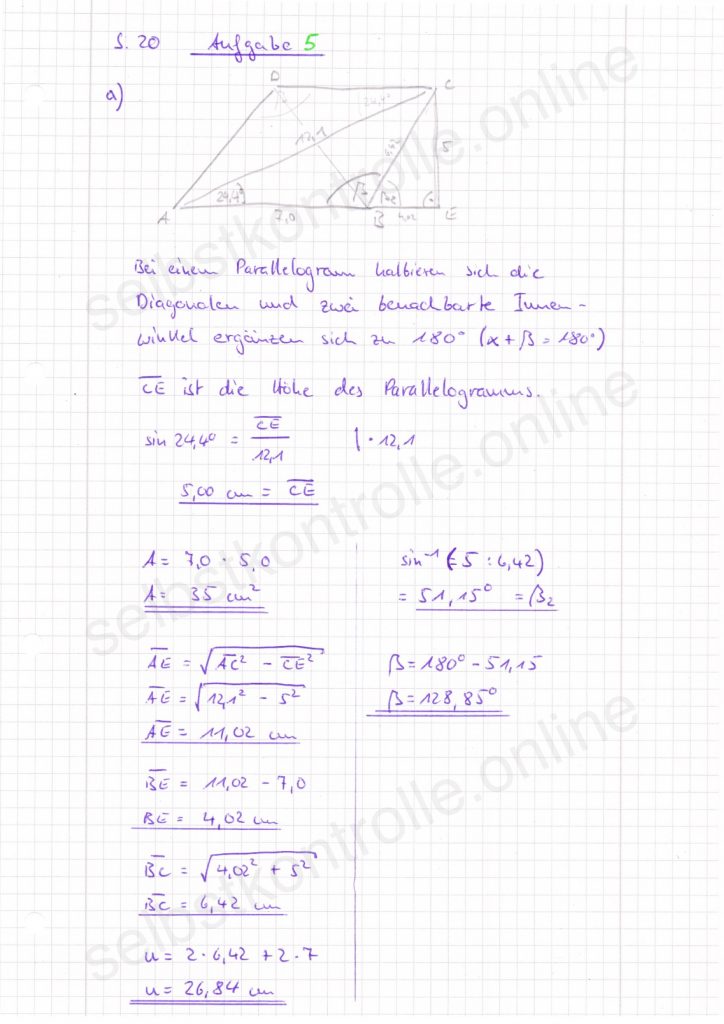 S. 20 Aufgabe 5
a)
D
C
24,4°
12,1
6,42
5
24,4°
β
β2
A
7,0
B
4,02
E
Bei einem Parallelogram halbieren sich die
Diagonalen und zwei benachbarte Innen-
winkel ergänzen sich zu 180° (α + β = 180°)
CE ist die Höhe des Parallelogramms.
sin 24,4° = CE / 12,1 | · 12,1
5,00 cm = CE
A = 7,0 · 5,0
A = 35 cm²
AE = √(AC² - CE²)
AE = √(12,1² - 5²)
AE = 11,02 cm
BE = 11,02 - 7,0
BE = 4,02 cm
BC = √(4,02² + 5²)
BC = 6,42 cm
u = 2 · 6,42 + 2 · 7
u = 26,84 cm
sin⁻¹ (5 : 6,42)
= 51,15° = β2
β = 180° - 51,15
β = 128,85°
selbstkontrolle.online
selbstkontrolle.online
selbstkontrolle.online